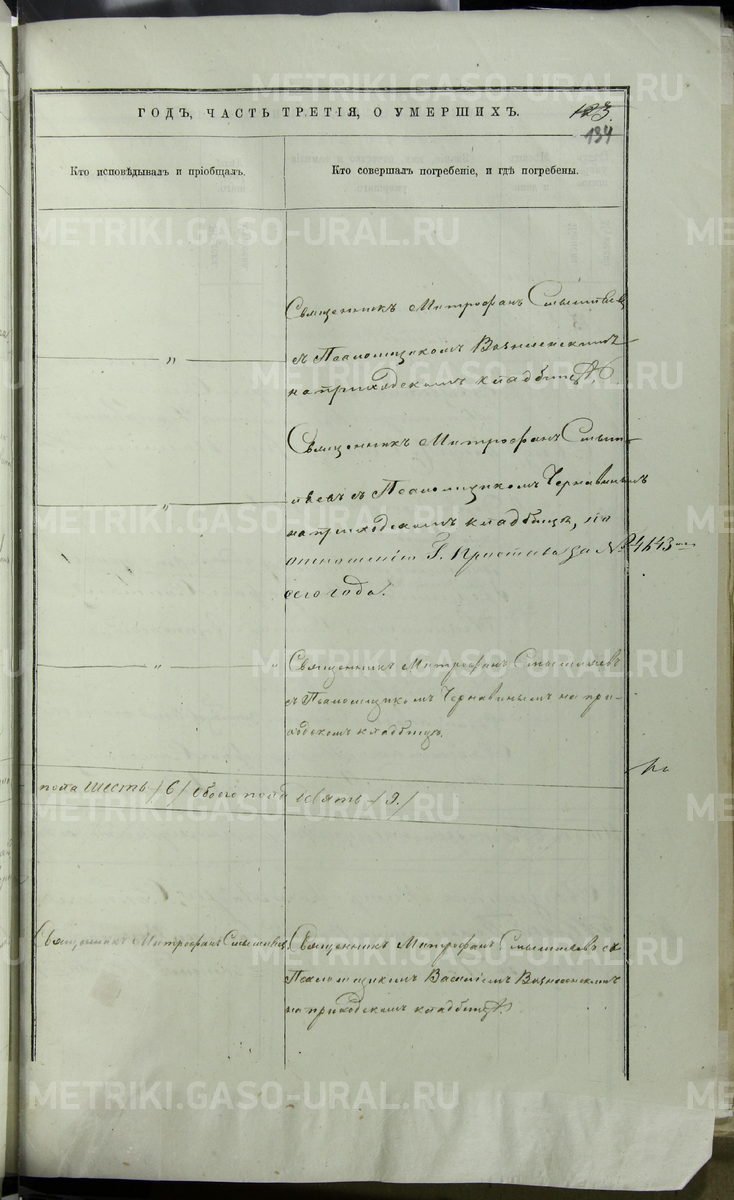 ГОДЪ, ЧАСТЬ ТРЕТІЯ, О УМЕРШИХЪ.
123.
134
Кто исповѣдывалъ и пріобщалъ.
Кто совершалъ погребеніе, и гдѣ погребены.
Священникъ Митрофанъ Смышляевъ
„ съ Псаломщикомъ Вознесенскимъ
на приходскомъ кладбищѣ.
Священникъ Митрофанъ Смыш-
„ ляевъ съ Псаломщикомъ Чернавинымъ
на приходскомъ кладбищѣ, по
отношенію Г. Пристава за № 4643
сего года.
„ „ Священникъ Митрофанъ Смышляевъ
съ Псаломщикомъ Чернавинымъ на при-
ходскомъ кладбищѣ.
пола шесть /6/ обоего пола девять /9./
Священникъ Митрофанъ Смышляевъ. Священникъ Митрофанъ Смышляевъ съ
Псаломщикомъ Василіемъ Вознесенскимъ
на приходскомъ кладбищѣ.
METRIKI.GASO-URAL.RU